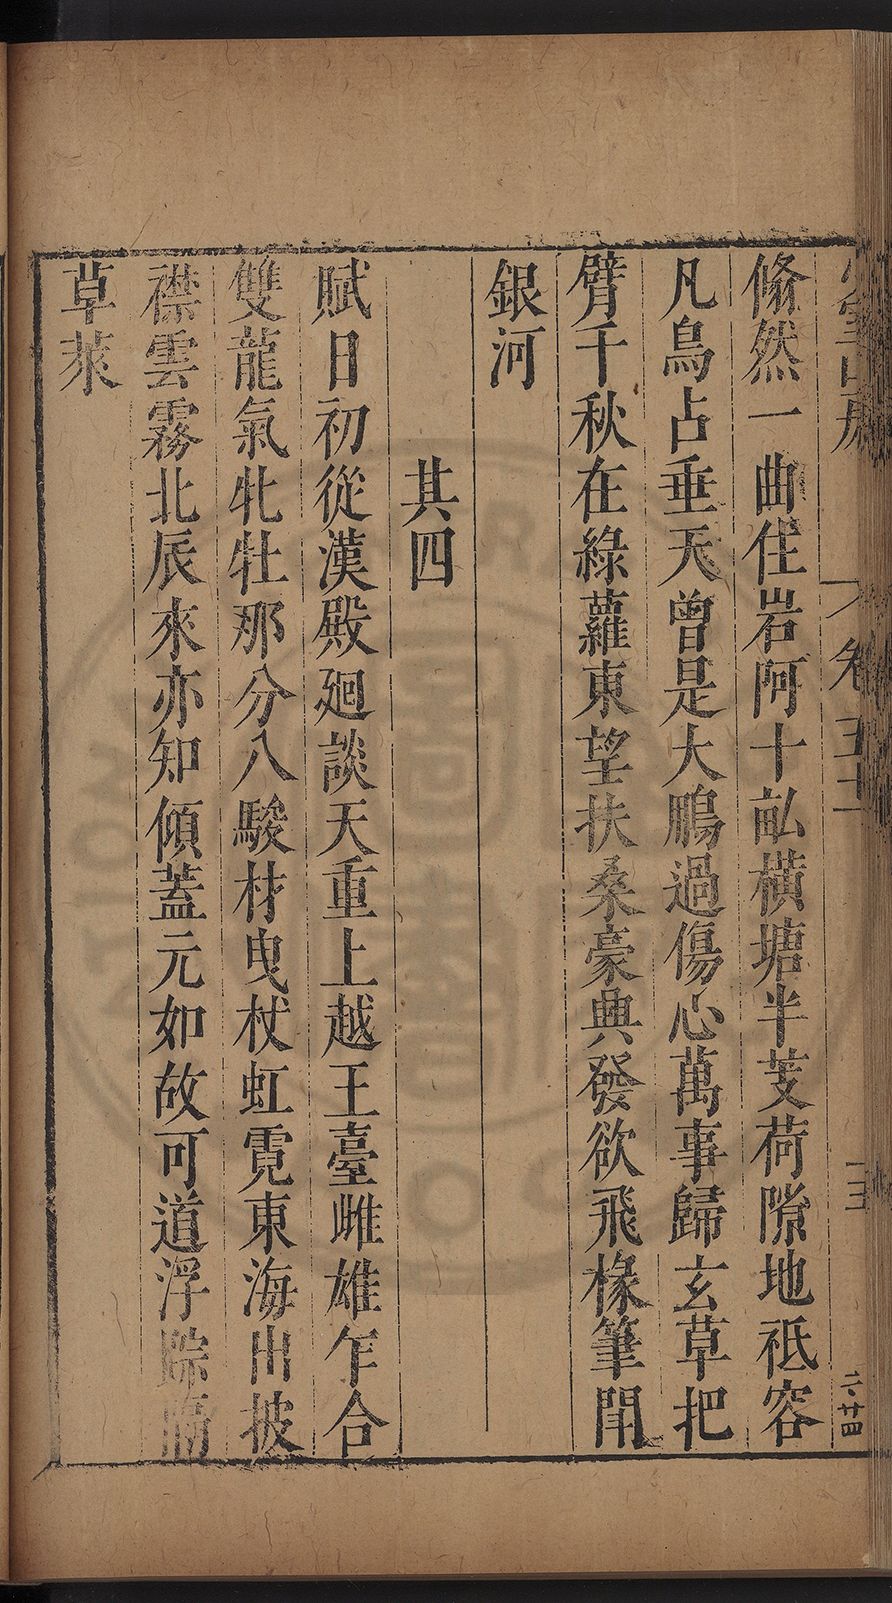 翛然一曲住岩阿十畝橫塘半芰荷隙地祗容
凡鳥占垂天曾是大鵬過傷心萬事歸玄草把
臂千秋在綠蘿東望扶桑豪興發欲飛椽筆開
銀河
其四
賦日初從漢殿廻談天重上越王臺雌雄乍合
雙龍氣牝牡那分八駿材曳杖虹霓東海出披
襟雲霧北辰來亦知傾蓋元如故可道浮踪
草萊
卷五十
二・廿四